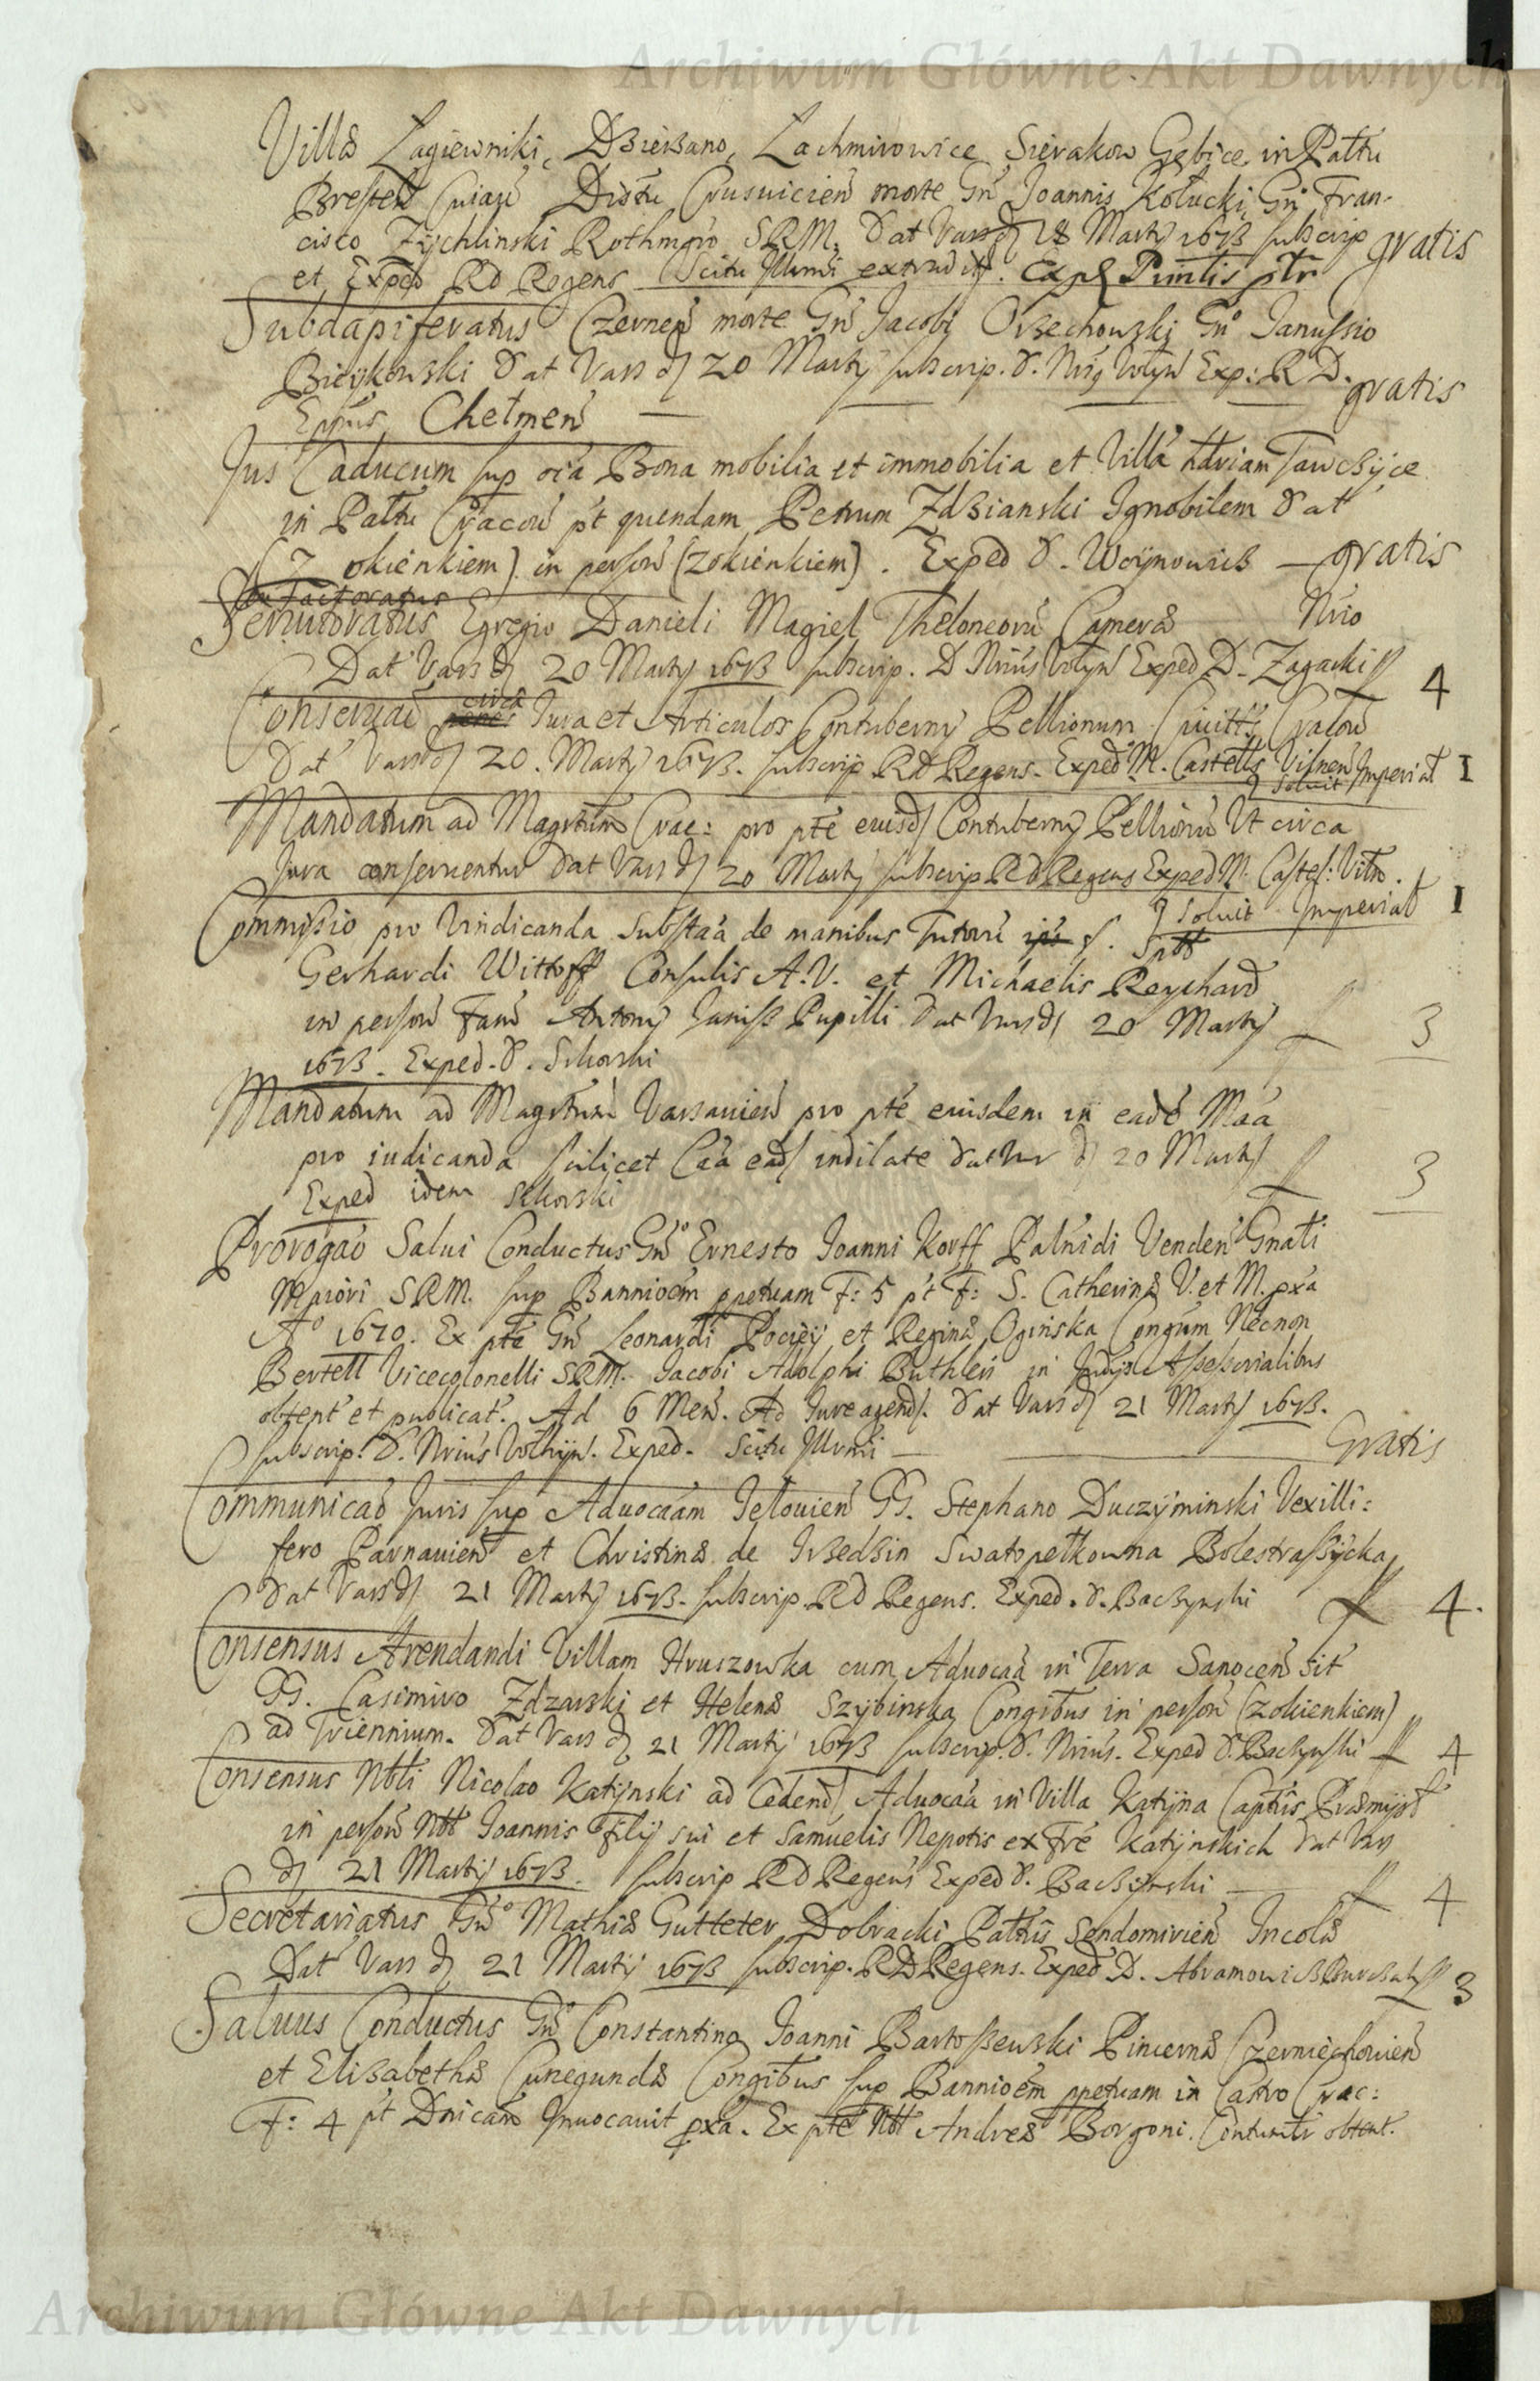 Archiwum Główne Akt Dawnych
Villæ Łagiewniki, Dzierzano, Lachmirowice Sierakow Gębice in Pałtu
Bresteń Cuiań Distu Crusuicień morte Gń Joannis Kołucki, Gń Fran-
cisco Zychlinski Rothmgro SRM. Dat Vars d 18 Martij 1673 subscrip gratis
et Exped RD Regens Scitu Illmi extradit.
Subdapiferatus Czerneń morte Gń Jacobi Orzechowski Gńo Janussio
Bieykowski Dat Vars d 20 Martij subscrip. D. Nrius Volyń Exp: R D. gratis
Eppus Chełmeń
Jus Caducum sup oia Bona mobilia et immobilia et Villa hdriam Jawczyce
in Pałtu Cracoń pt quendam Petrum Zdzianski Ignobilem Dat
(Z okienkiem) in persoń (zokienkiem). Exped D. Woynowicz — gratis
Seruitoratus Egregio Danieli Magiel Theloneorū Cameræ Nrio
Dat Vars d 20 Martij 1673 subscrip. D Nrius Volyń Exped D. Zagacki 4
Conseruaō circa Iura et Articulos Contubernij Pellionum Ciuittis Cracoń
Dat Vars d 20. Martij 1673. subscrip RD Regens. Exped M. Castells Vilneń
soluit Imperiał 1
Mandatum ad Magrtum Crac: pro pte eiusd Contubernij Pellionū Ut circa
Jura conseruentur Dat Vars d 20 Martij subscrip RD Regens Exped M. Castel: Viln.
soluit Imperiał 1
Commissio pro Vindicanda Substaā de manibus Tutorū Sptt
Gerhardi Wittoff Consulis A.V. et Michaelis Reychard
in persoń Fam Antonij Janisz Pupilli Dat Vars d 20 Martij 3
1673. Exped. D. Sikorski
Mandatum ad Magrtum Varsauień pro pte eiusdem in eadē Maā
pro iudicanda scilicet Caā ead indilate Dat Var d 20 Martij 3
Exped idem Sikorski
Prorogaō Salui Conductus Gńo Ernesto Joanni Korff Palnidi Vendeń Gnałi
Maiori SRM. sup Bannioem ppetuam F: 5 pt F: S. Catherinæ V. et M. pxa
Ao 1670. Ex pte Gń Leonardi Pociey et Reginæ Oginska Congum Necnon
Bertell Vicecolonelli SRM. Jacobi Adolphi Buthler in Judijs Assessorialibus
obtent et publicat. Ad 6 Meń. Ad Jure agend. Dat Vars d 21 Martij 1673.
subscrip. D. Nrius Volhyń. Exped. Scitu Illrmi — Gratis
Communicaō Juris sup Aduocaām Jełouień GG. Stephano Duczyminski Vexilli:
fero Parnauień et Christinæ de Irzedzin Swatopełkowna Bolestraszycka
Dat Vars d 21 Martij 1673. subscrip. RD Regens. Exped. D. Baczynski 4.
Consensus Arendandi Villam Hruszowka cum Aduocaā in Terra Sanoceń sit
GG. Casimiro Zdzarski et Helenæ Szybinska Congibus in persoń (zokienkiem)
ad Triennium. Dat Vars d 21 Martij 1673 subscrip. D. Nrius. Exped D. Baczynski 4
Consensus Nbłi Nicolao Katynski ad Cedend Aduocaā in Villa Katyna Captus Præmysł
in persoń Nbł Joannis Filij sui et Samuelis Nepotis ex Fre Katynskich Dat Vars
d 21 Martij 1673. subscrip RD Regens Exped D. Baczynski 4
Secretariatus Gńo Mathiæ Gutteter Dobracki Pałtus Sendomirień Incolæ
Dat Vars d 21 Martij 1673 subscrip. RD Regens. Exped D. Abramowicz 3
Saluus Conductus Gńo Constantino Joanni Bartoszewski Pincernæ Czerniechouień
et Elisabethæ Cunegundæ Congibus sup Bannioem ppetuam in Castro Crac:
F: 4 pt Dnicam Inuocauit pxa. Ex pte Nbł Andreæ Borgoni. obtent.
Archiwum Główne Akt Dawnych